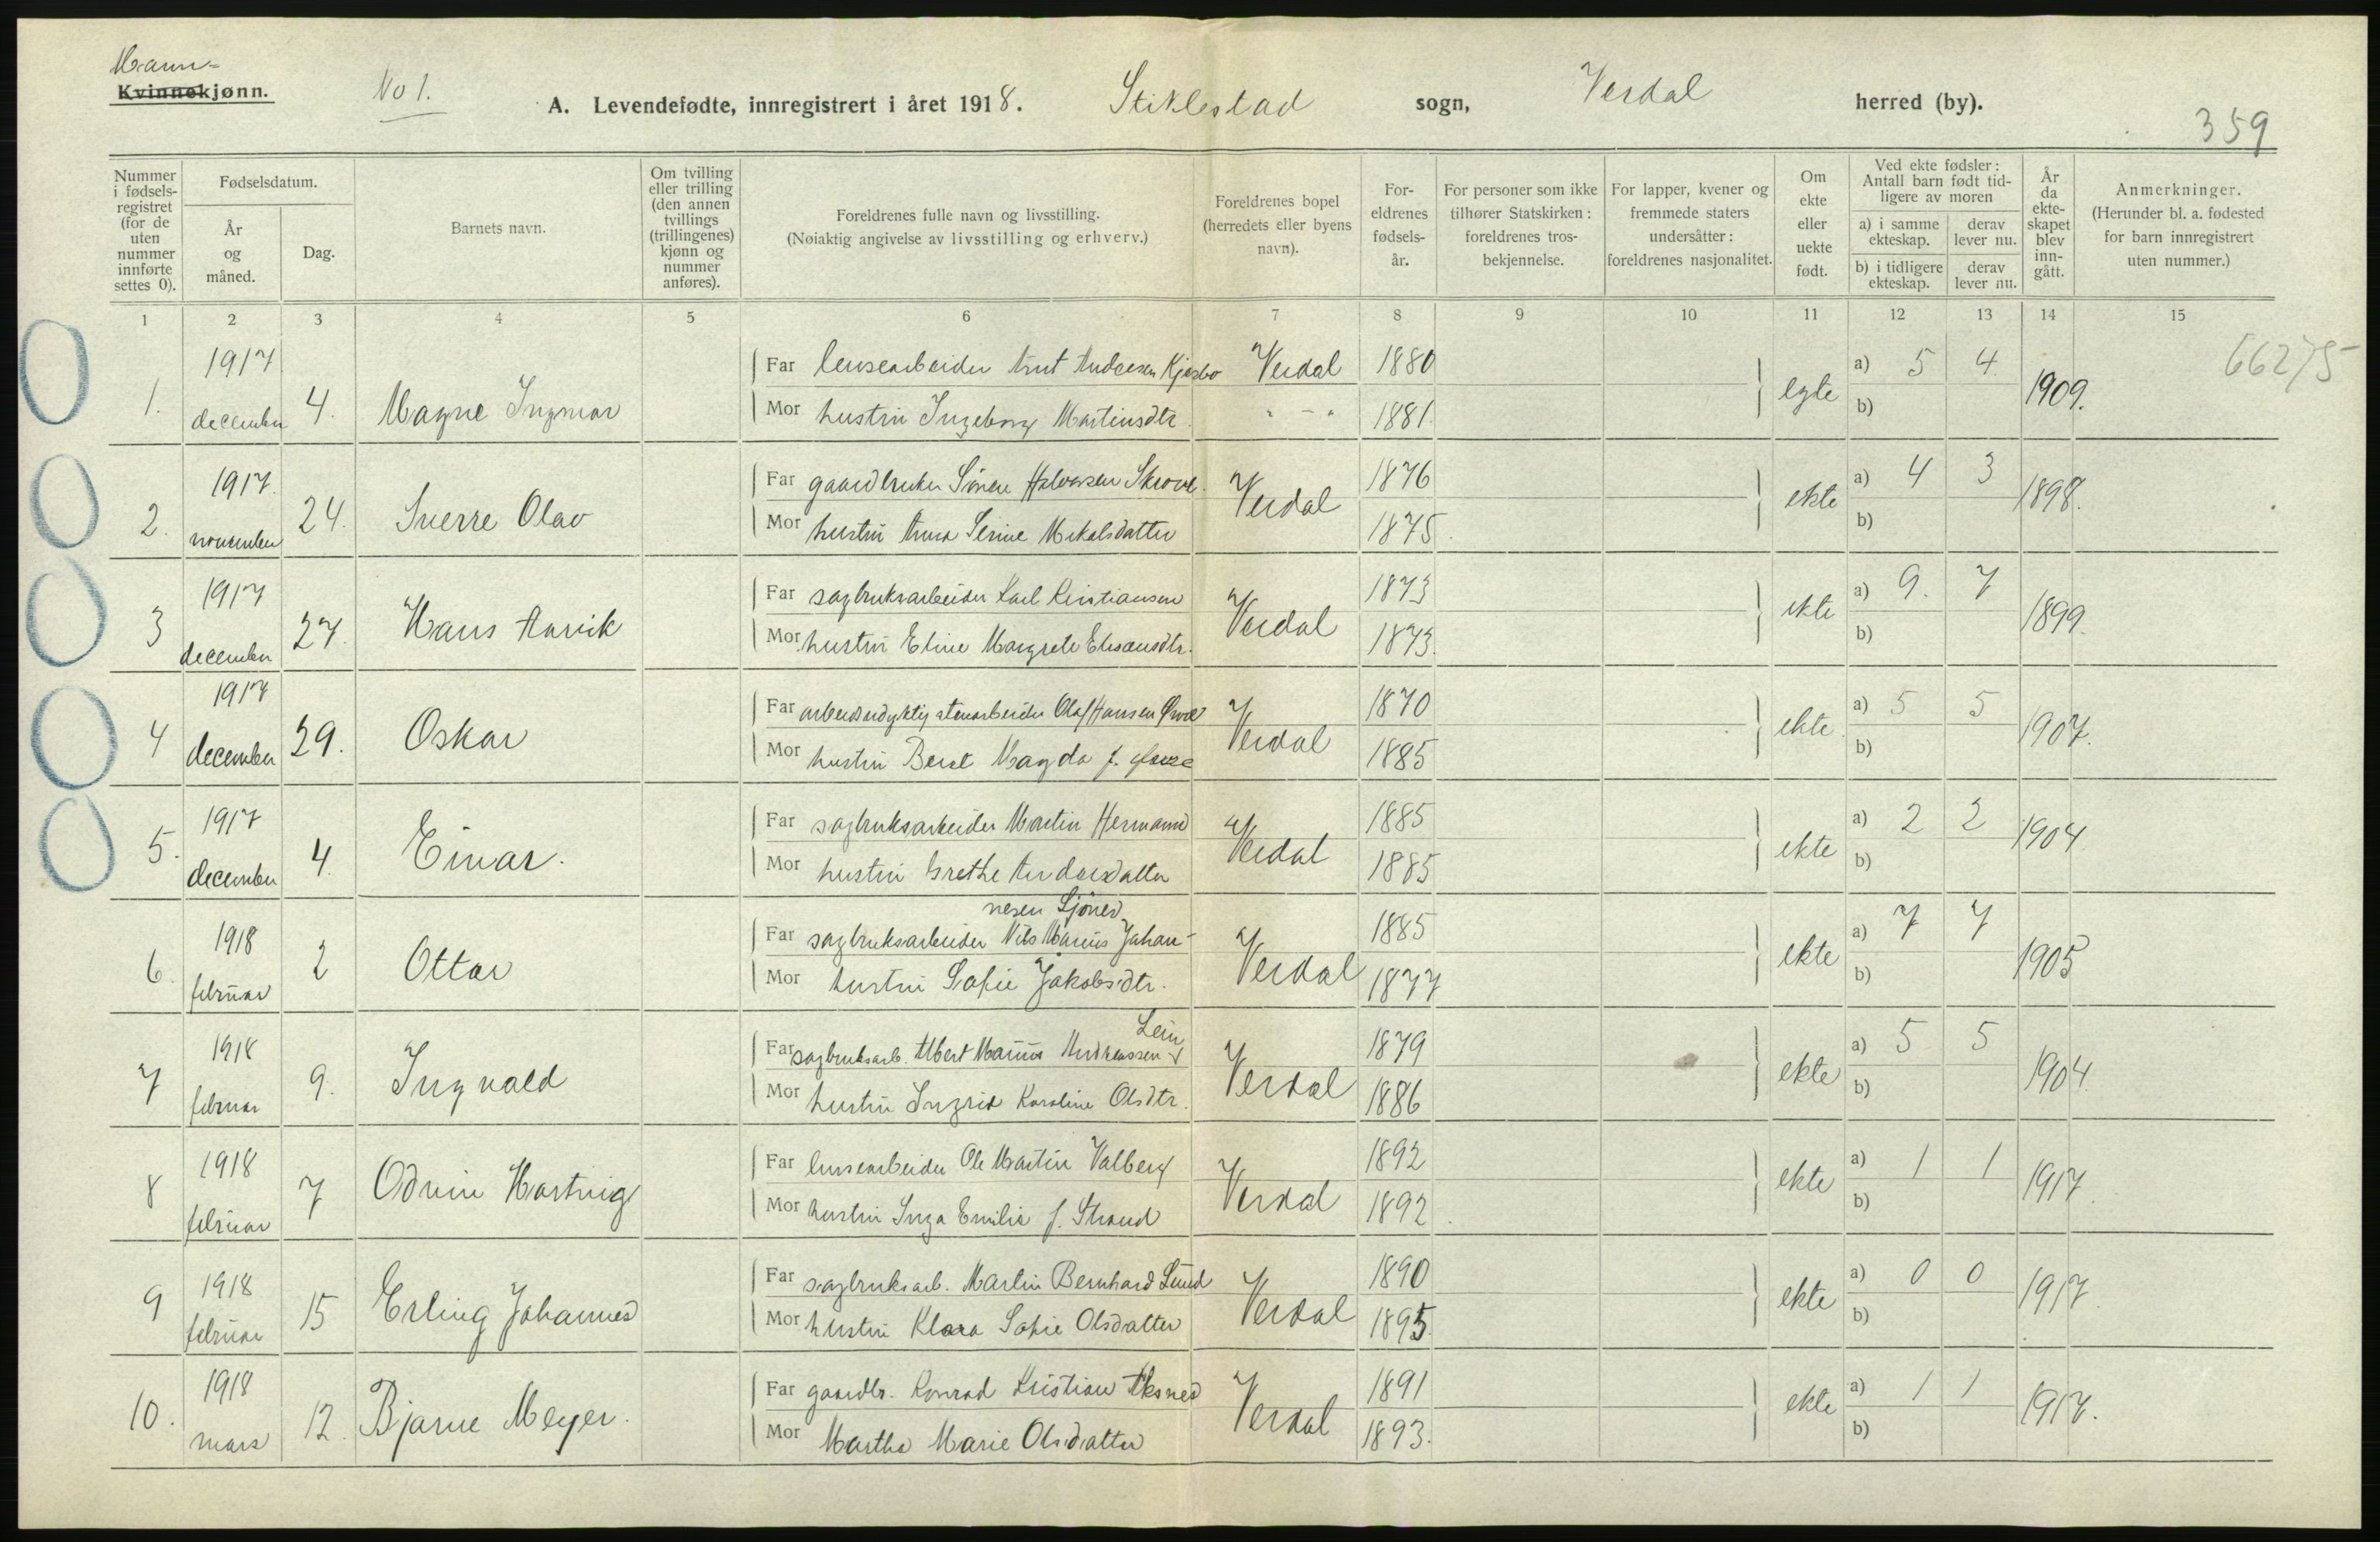 Mann-
Kvinnekjønn.
No 1.
A. Levendefødte, innregistrert i året 1918. Stiklestad sogn, Verdal herred (by).
359
Nummer i fødselsregistret (for de uten nummer innførte settes 0).
Fødselsdatum.
År og måned.
Dag.
Barnets navn.
Om tvilling eller trilling (den annen tvillings (trillingenes) kjønn og nummer anføres).
Foreldrenes fulle navn og livsstilling.
(Nøiaktig angivelse av livsstilling og erhverv.)
Foreldrenes bopel (herredets eller byens navn).
Foreldrenes fødselsår.
For personer som ikke tilhører Statskirken: foreldrenes trosbekjennelse.
For lapper, kvener og fremmede staters undersåtter: foreldrenes nasjonalitet.
Om ekte eller uekte født.
Ved ekte fødsler: Antall barn født tidligere av moren
a) i samme ekteskap.
derav lever nu.
b) i tidligere ekteskap.
derav lever nu.
År da ekteskapet blev inngått.
Anmerkninger.
(Herunder bl. a. fødested for barn innregistrert uten nummer.)
1 2 3 4 5 6 7 8 9 10 11 12 13 14 15
66275
1. 1917 december 4. Magne Ingmar
Far lensearbeider Knut Andersen Kjesbo Verdal 1880 egte a) 5 4 1909.
Mor hustru Ingeborg Martinsdtr. " - " 1881. b)
2. 1917. november 24. Sverre Olav
Far gaardbruker Sören Halvorsen Skrove. Verdal 1876 ekte a) 4 3 1898.
Mor hustru Anna Serine Mikalsdatter 1875. b)
3 1917 december 27. Hans Anvik
Far sagbruksarbeider Karl Kristiansen Verdal 1873 ekte a) 9. 7 1899.
Mor hustru Eline Margrete Eliseusdtr. 1873. b)
4 1917 december 29. Oskar
Far stenarbeider Olaf Hansen Verdal 1870 ekte a) 5 5 1907.
Mor hustru Beret Magda f. 1885 b)
5. 1917 december 4. Einar.
Far sagbruksarbeider Martin Hermann Verdal 1885 ekte a) 2 2 1904
Mor hustru Grethe Andersdatter 1885 b)
6. 1918 februar 2 Ottar
nesen Sjønes
Far sagbruksarbeider Nils Marius Johan- Verdal 1885 ekte a) 7 7 1905
Mor hustru Sofie Jakobsdtr. 1877 b)
7 1918 februar 9. Ingvald
Lein
Far sagbruksarb. Albert Marius Andreassen Verdal 1879 ekte a) 5 5 1904.
Mor hustru Ingrid Karoline Olsdtr. 1886 b)
8 1918 februar 7 Odvin Hartvig
Far lensearbeider Ole Martin Valberg Verdal 1892 ekte a) 1 1 1917.
Mor hustru Inga Emilie f. Strand 1892. b)
9 1918 februar 15 Erling Johannes
Far sagbruksarb. Martin Bernhard Lund Verdal 1890 ekte a) 0 0 1917.
Mor hustru Klara Sofie Olsdatter 1895. b)
10. 1918 mars 12. Bjarne Meyer.
Far gaardbr. Konrad Kristian Aksnes Verdal 1891 ekte a) 1 1 1917.
Mor Martha Marie Olsdatter 1893. b)